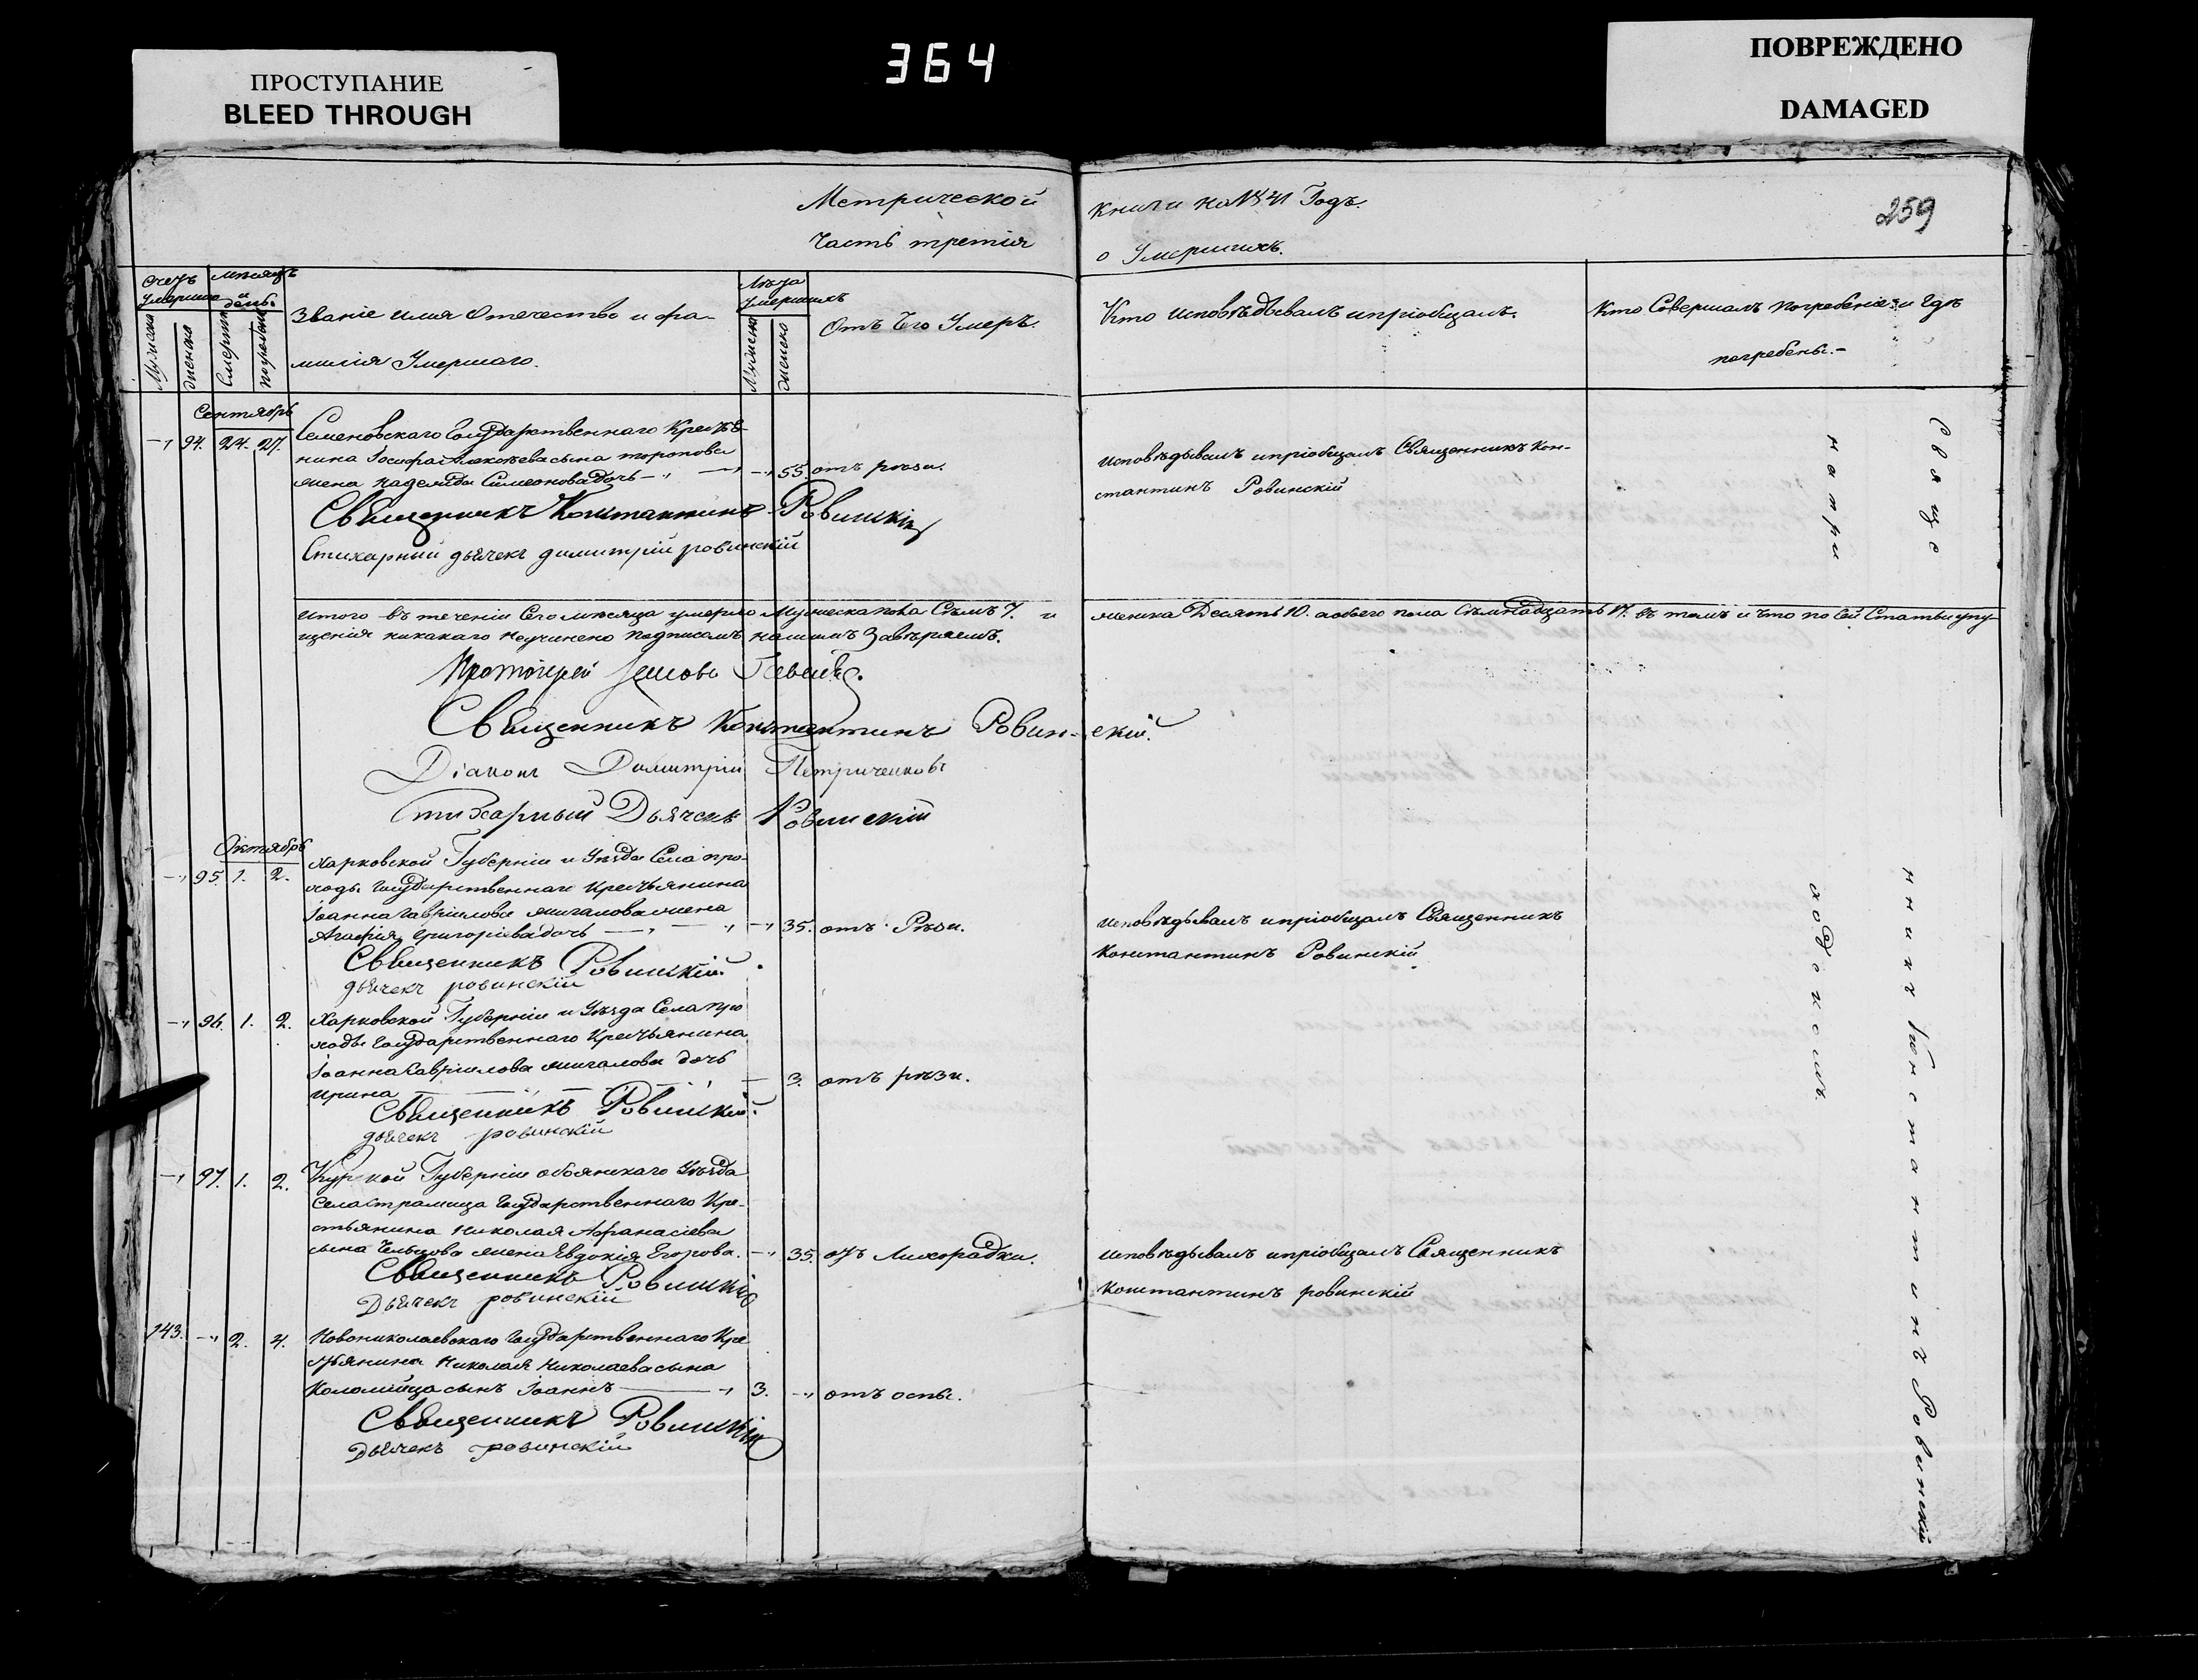 ПРОСТУПАНИЕ
BLEED THROUGH
364
ПОВРЕЖДЕНО
DAMAGED
Метрической
книги на 1841 Годъ.
259
часть третія
о Умершихъ.
Счетъ умершихъ
Мѣсяцъ и день.
Званіе имя Отечество и фа-
милія Умершаго.
Лѣта Умершихъ
Отъ Чего Умеръ.
Кто исповѣдывалъ и пріобщалъ.
Кто Совершалъ погребеніе и гдѣ
погребены.-
Мужеска
женска
Смерти
погребенія
Мужеска
женска
Сентябрь
94. 24. 27. Семеновскаго Государственнаго Крестья-
нина Іосифа сына торопова
жена надежда Симеонова дочь 55 отъ рѣзи.
Исповѣдывалъ и пріобщалъ Священникъ Кон-
стантинъ Ровинскій
Священникъ Константинъ Ровинскій
Стихарный дьячекъ димитрій ровинскій
итого въ теченіи Сего мѣсяца умерло Мужеска пола Семь 7. и женска Десять 10. а обоего пола Семнадцать 17. въ томъ и что по сей Статьи упу-
щенія никакаго неучинено подписомъ нашимъ Завѣряемъ.
Протоіерей
Священникъ Константинъ Ровин-скій.
Діаконъ Димитрій Петриченковъ
Стихарный Дьячекъ Ровинскій
Октябрь
95. 1. 2. Харковской Губерніи и Уѣзда Села про-
ходы Государственнаго Крестьянина
Іоанна Гавріилова жигалова жена
Агафія Григоріева дочь 35. отъ Рѣзи.
Исповѣдывалъ и пріобщалъ Священникъ
Константинъ Ровинскій
Священникъ Ровинскій
дьячекъ ровинскій
96. 1. 2. Харковской Губерніи и Уѣзда Села про
ходы Государственнаго Крестьянина
Іоанна Гавріилова жигалова дочь
ирина 3. отъ рѣзи.
Священникъ Ровинскій
дьячекъ ровинскій
97. 1. 2. Курской Губерніи обоянскаго Уѣзда
села Государственнаго Кре-
стьянина николая Афанасіева
сына жена Евдокія Егорова. 35. отъ Лихорадки.
Исповѣдывалъ и пріобщалъ Священникъ
Константинъ ровинскій
Священникъ Ровинскій
Дьячекъ ровинскій
143. 2. 4. Новониколаевскаго Государственнаго Кре
стьянина Николая Николаева сына
Коломійца сынъ Іоаннъ 3. отъ оспы.
Священникъ Ровинскій
Дьячекъ ровинскій
Священникъ Константинъ Ровинскій
на при ходскомъ